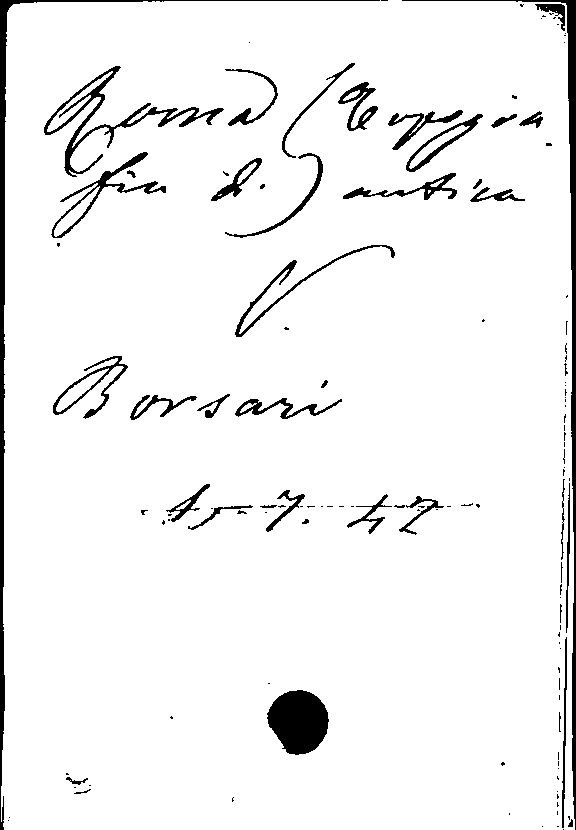 Roma (Topogra
fia d.) antica
V.
Borsari
15. 7. 42